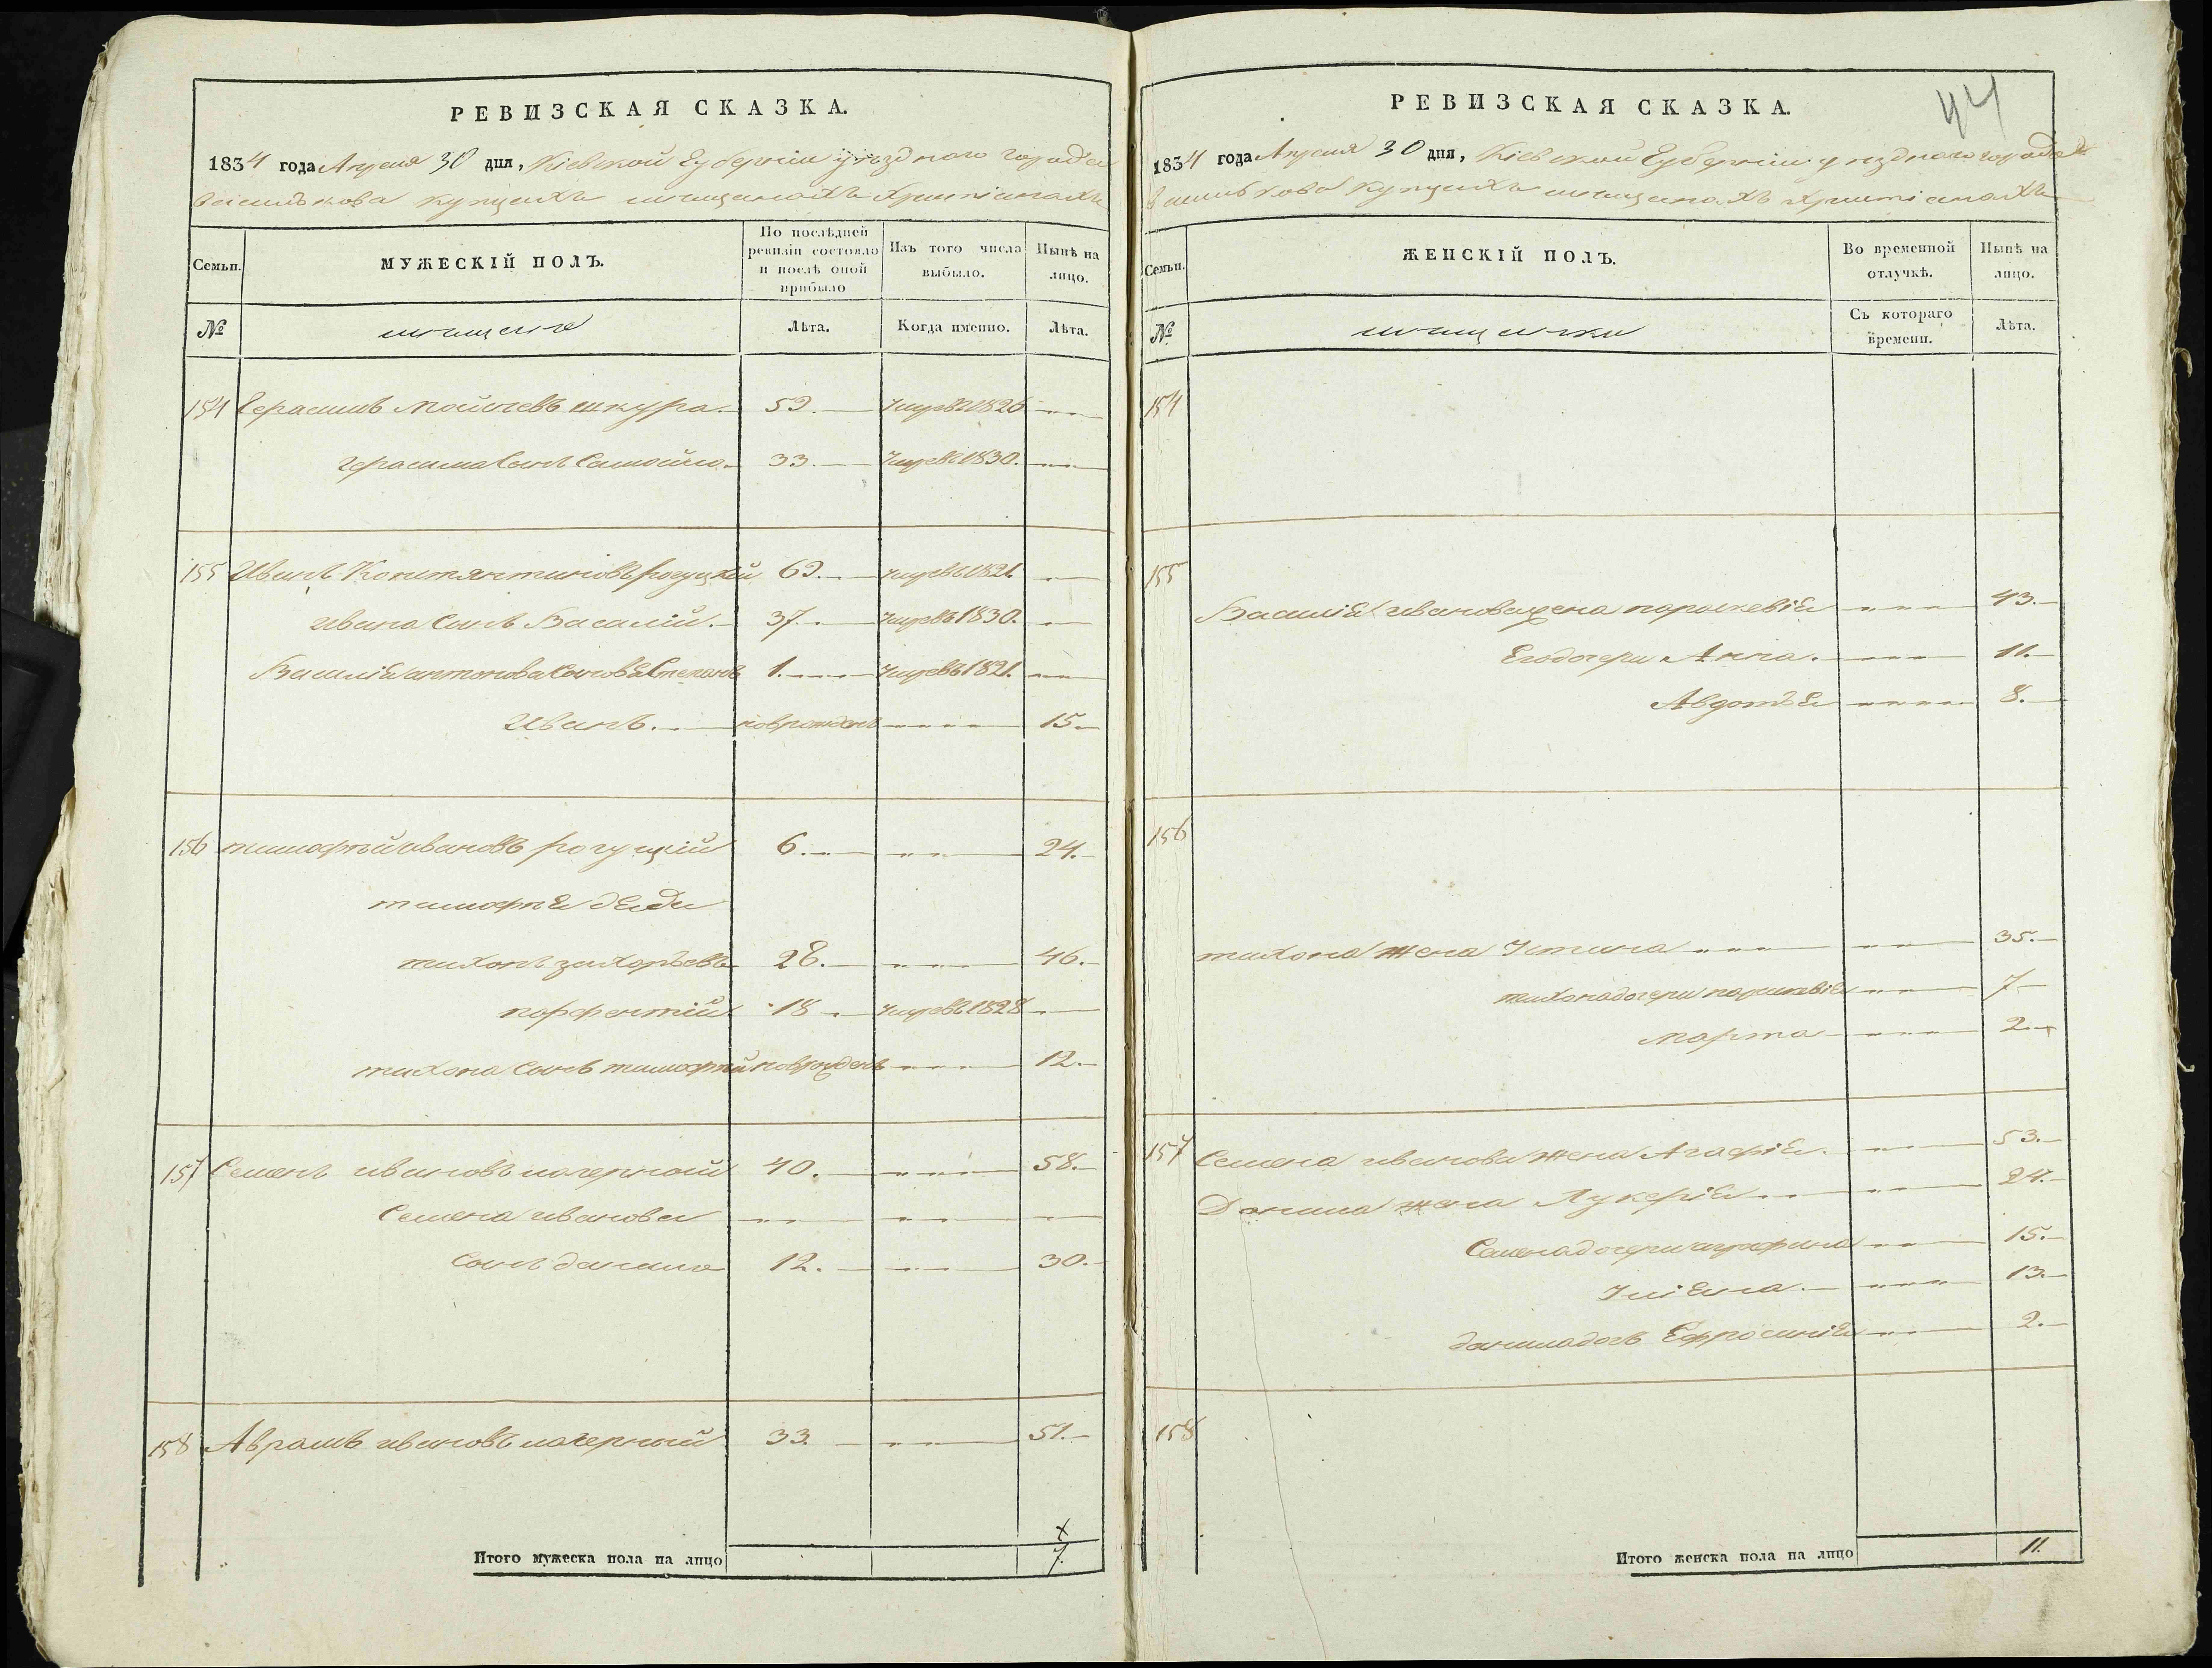 РЕВИЗСКАЯ СКАЗКА.
1834 года Апреля 30 дня, Кіевской Губерніи уѣзднаго города
Василькова Купцахъ мещанахъ Христіанахъ
Семьи.
МУЖЕСКІЙ ПОЛЪ.
По послѣдней ревизіи состояло и послѣ оной прибыло
Изъ того числа выбыло.
Нынѣ на лицо.
№
мещане
Лѣта.
Когда именно.
Лѣта.
154 Герасимъ Мойсеевъ шкура 59. умре въ 1826
герасима Сынъ Самойло 33. умре въ 1830.
155 Иванъ Константиновъ рогуцкій 69. умре въ 1821.
ивана Сынъ Василій. 37. умре въ 1830.
Василія Сыновья Степанъ 1. умре въ 1821.
Иванъ. новрожденъ 15.
156 тимофей ивановъ рогуцкій 6. 24.
тимофея дяди
тихонъ захарьевъ 28. 46.
порфентій 18 умре въ 1828
тихона Сынъ тимофей новрожденъ 12.
157 Семенъ ивановъ 40. 58.
Семена иванова
Сынъ данило 12. 30.
158 Аврамъ ивановъ 33. 51.
Итого мужеска пола на лицо 7.
РЕВИЗСКАЯ СКАЗКА. 44
1834 года Апреля 30 дня, Кіевской Губерніи уезднаго города
Василькова Купцахъ мещанахъ Христіанахъ
Семьи.
ЖЕНСКІЙ ПОЛЪ.
Во временной отлучкѣ.
Нынѣ на лицо.
№
мещанки
Съ котораго времени.
Лѣта.
154
155
Василія иванова жена параскевія 43.
Его дочери Анна. 11.
Авдотья 8.
156
тихона жена Устина 35.
тихона дочери параскевія 7
марта 2.
157 Семена иванова жена Агафія. 53.
Данила жена Лукерія 24.
Семена дочери 15.
Уліяна. 13.
данила дочь Ефросинія 2.
158
Итого женска пола на лицо 11.